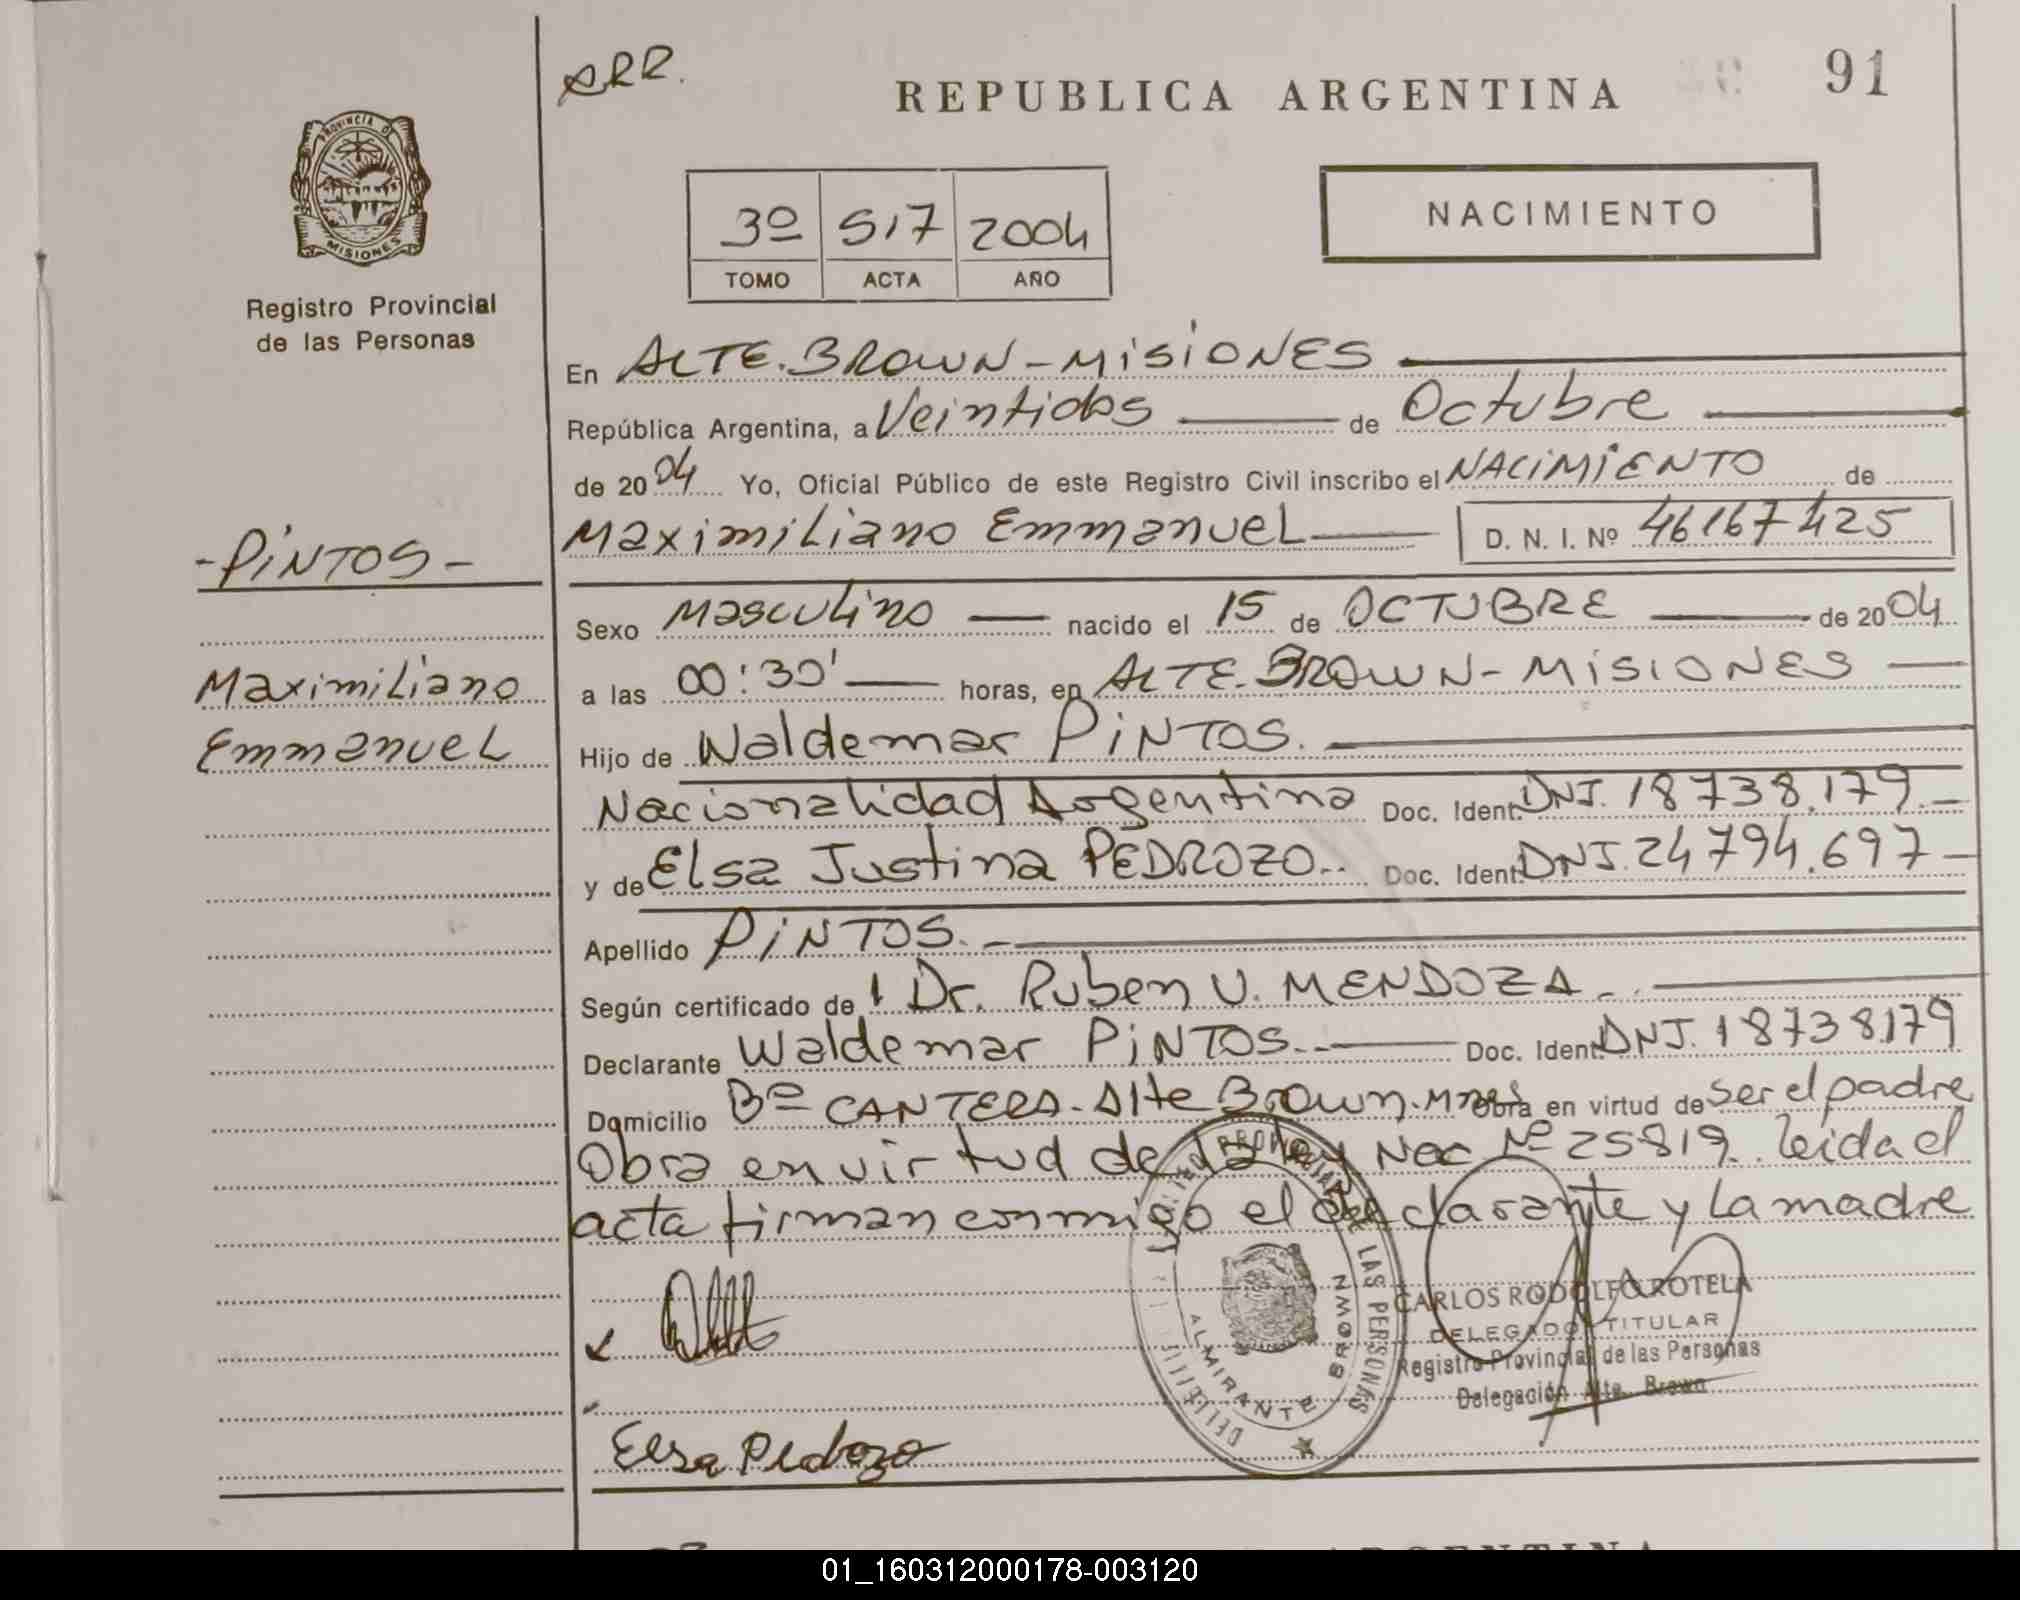 ARR.
REPUBLICA ARGENTINA
91
PROVINCIA DE
MISIONES
Registro Provincial
de las Personas
NACIMIENTO
3º 517 2004
TOMO ACTA AÑO
En ALTE. BROWN - MISIONES
República Argentina, a Veintidos de Octubre
de 2004 Yo, Oficial Público de este Registro Civil inscribo el NACIMIENTO de
Maximiliano Emmanuel D. N. I. Nº 46167425
- PINTOS -
Maximiliano
Emmanuel
Sexo Masculino nacido el 15 de OCTUBRE de 2004
a las 00:30' horas, en ALTE. BROWN - MISIONES
Hijo de Waldemar PINTOS.
Nacionalidad Argentina Doc. Ident. DNI. 18738.179.-
y de Elsa Justina PEDROZO.. Doc. Ident. DNI. 24794.697-
Apellido PINTOS.-
Según certificado de Dr. Ruben U. MENDOZA
Declarante Waldemar PINTOS.- Doc. Ident. DNI. 18738.179
Domicilio Bº CANTERA - Alte Brown - Mnes Obra en virtud de ser el padre
Obra en virtud de la ley Nac Nº 25819. leida el
acta firman conmigo el declarante y la madre
Elsa Pedrozo
LAS PERSONAS
ALMIRANTE BROWN
CARLOS RODOLFO ROTELA
DELEGADO TITULAR
Registro Provincial de las Personas
Delegación Alte. Brown
ARGENTINA
01_160312000178-003120